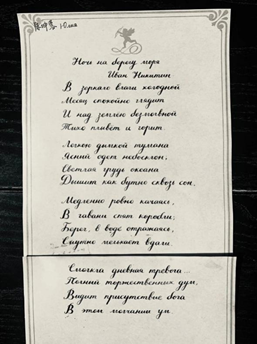 Юлия
Ночь на берегу моря
Иван Никитин
В зеркало влаги холодной
Месяц спокойно глядит
И над землею безмолвной
Тихо плывёт и горит.
Легкою дымкой тумана
Ясный одет небосклон;
Светлая грудь океана
Дышит как будто сквозь сон.
Медленно ровно качаясь,
В гавани спят корабли;
Берег, в воде отражаясь,
Смутно мелькает вдали.
Смолкла дневная тревога...
Полный торжественных дум,
Видит присутствие бога
В этом молчании ум.